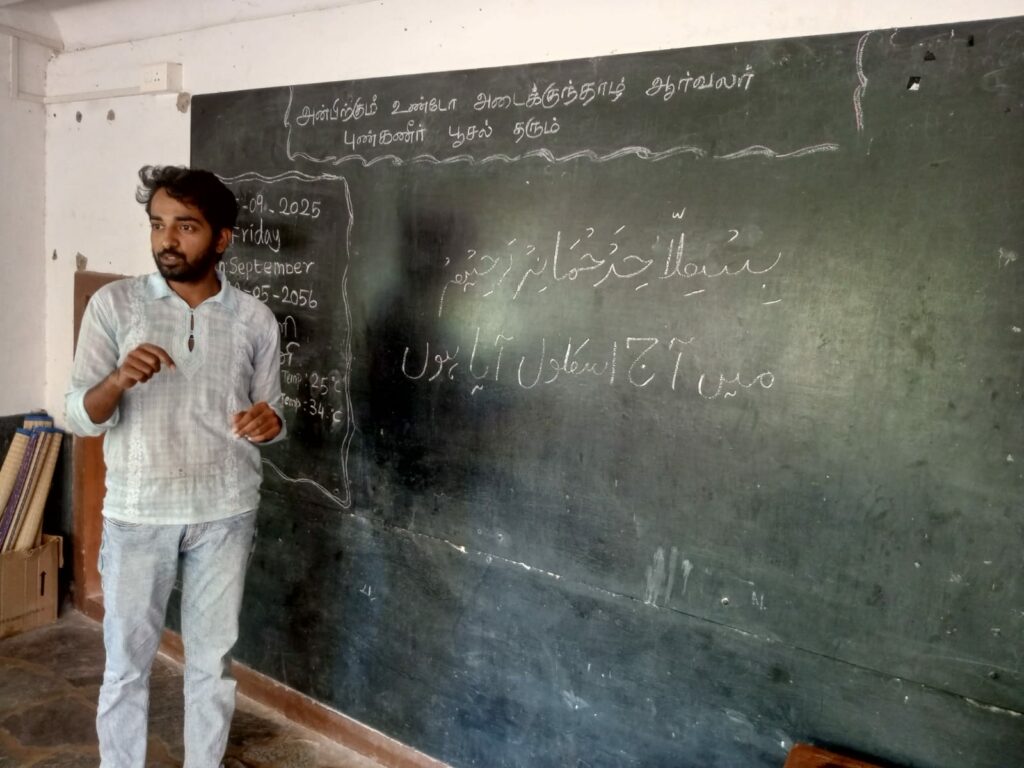 அன்பிற்கும் உண்டோ அடைக்குந்தாழ் ஆர்வலர்
புண்கணீர் பூசல் தரும்
-09-2025
Friday
September
-05-2056
Temp: 25°C
Temp: 34°C
میں آج اسکول آیا ہوں